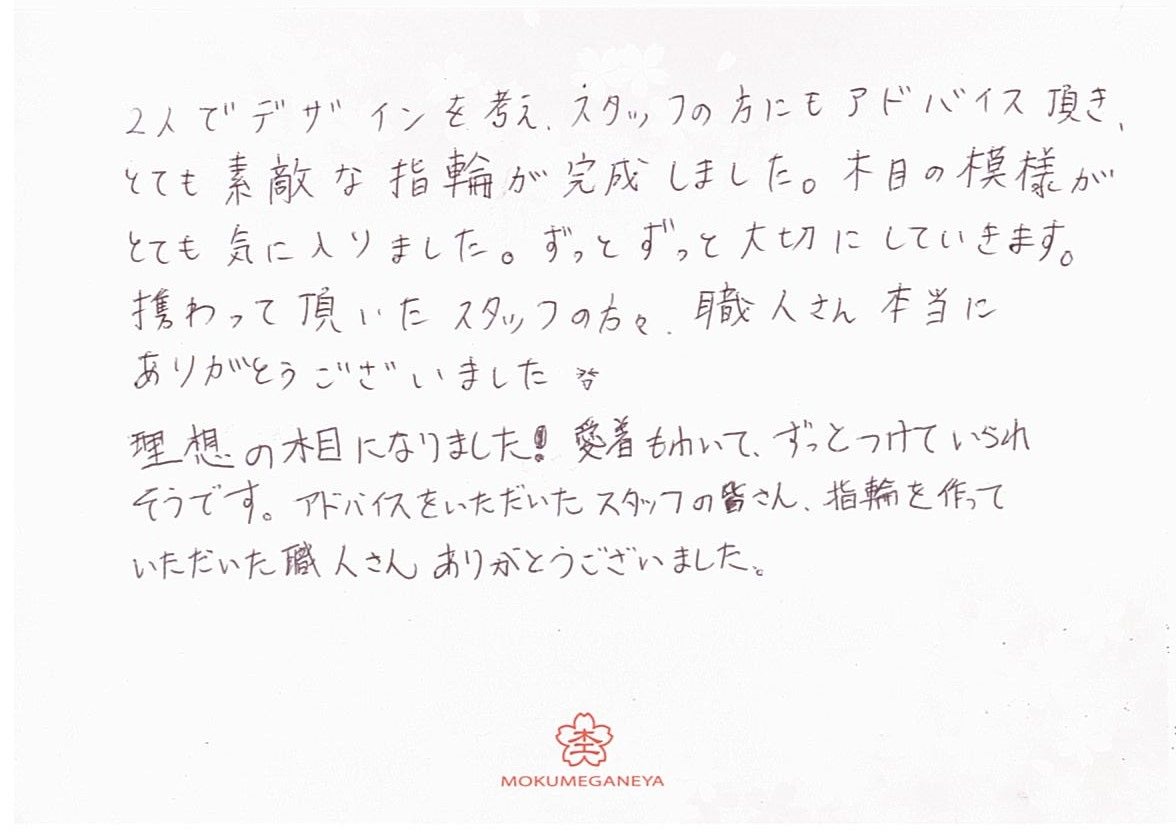 2人でデザインを考え、スタッフの方にもアドバイス頂き、
とても素敵な指輪が完成しました。木目の模様が
とても気に入りました。ずっとずっと大切にしていきます。
携わって頂いたスタッフの方々、職人さん本当に
ありがとうございました
理想の木目になりました!愛着もわいて、ずっとつけていられ
そうです。アドバイスをいただいたスタッフの皆さん、指輪を作って
いただいた職人さんありがとうございました。
MOKUMEGANEYA